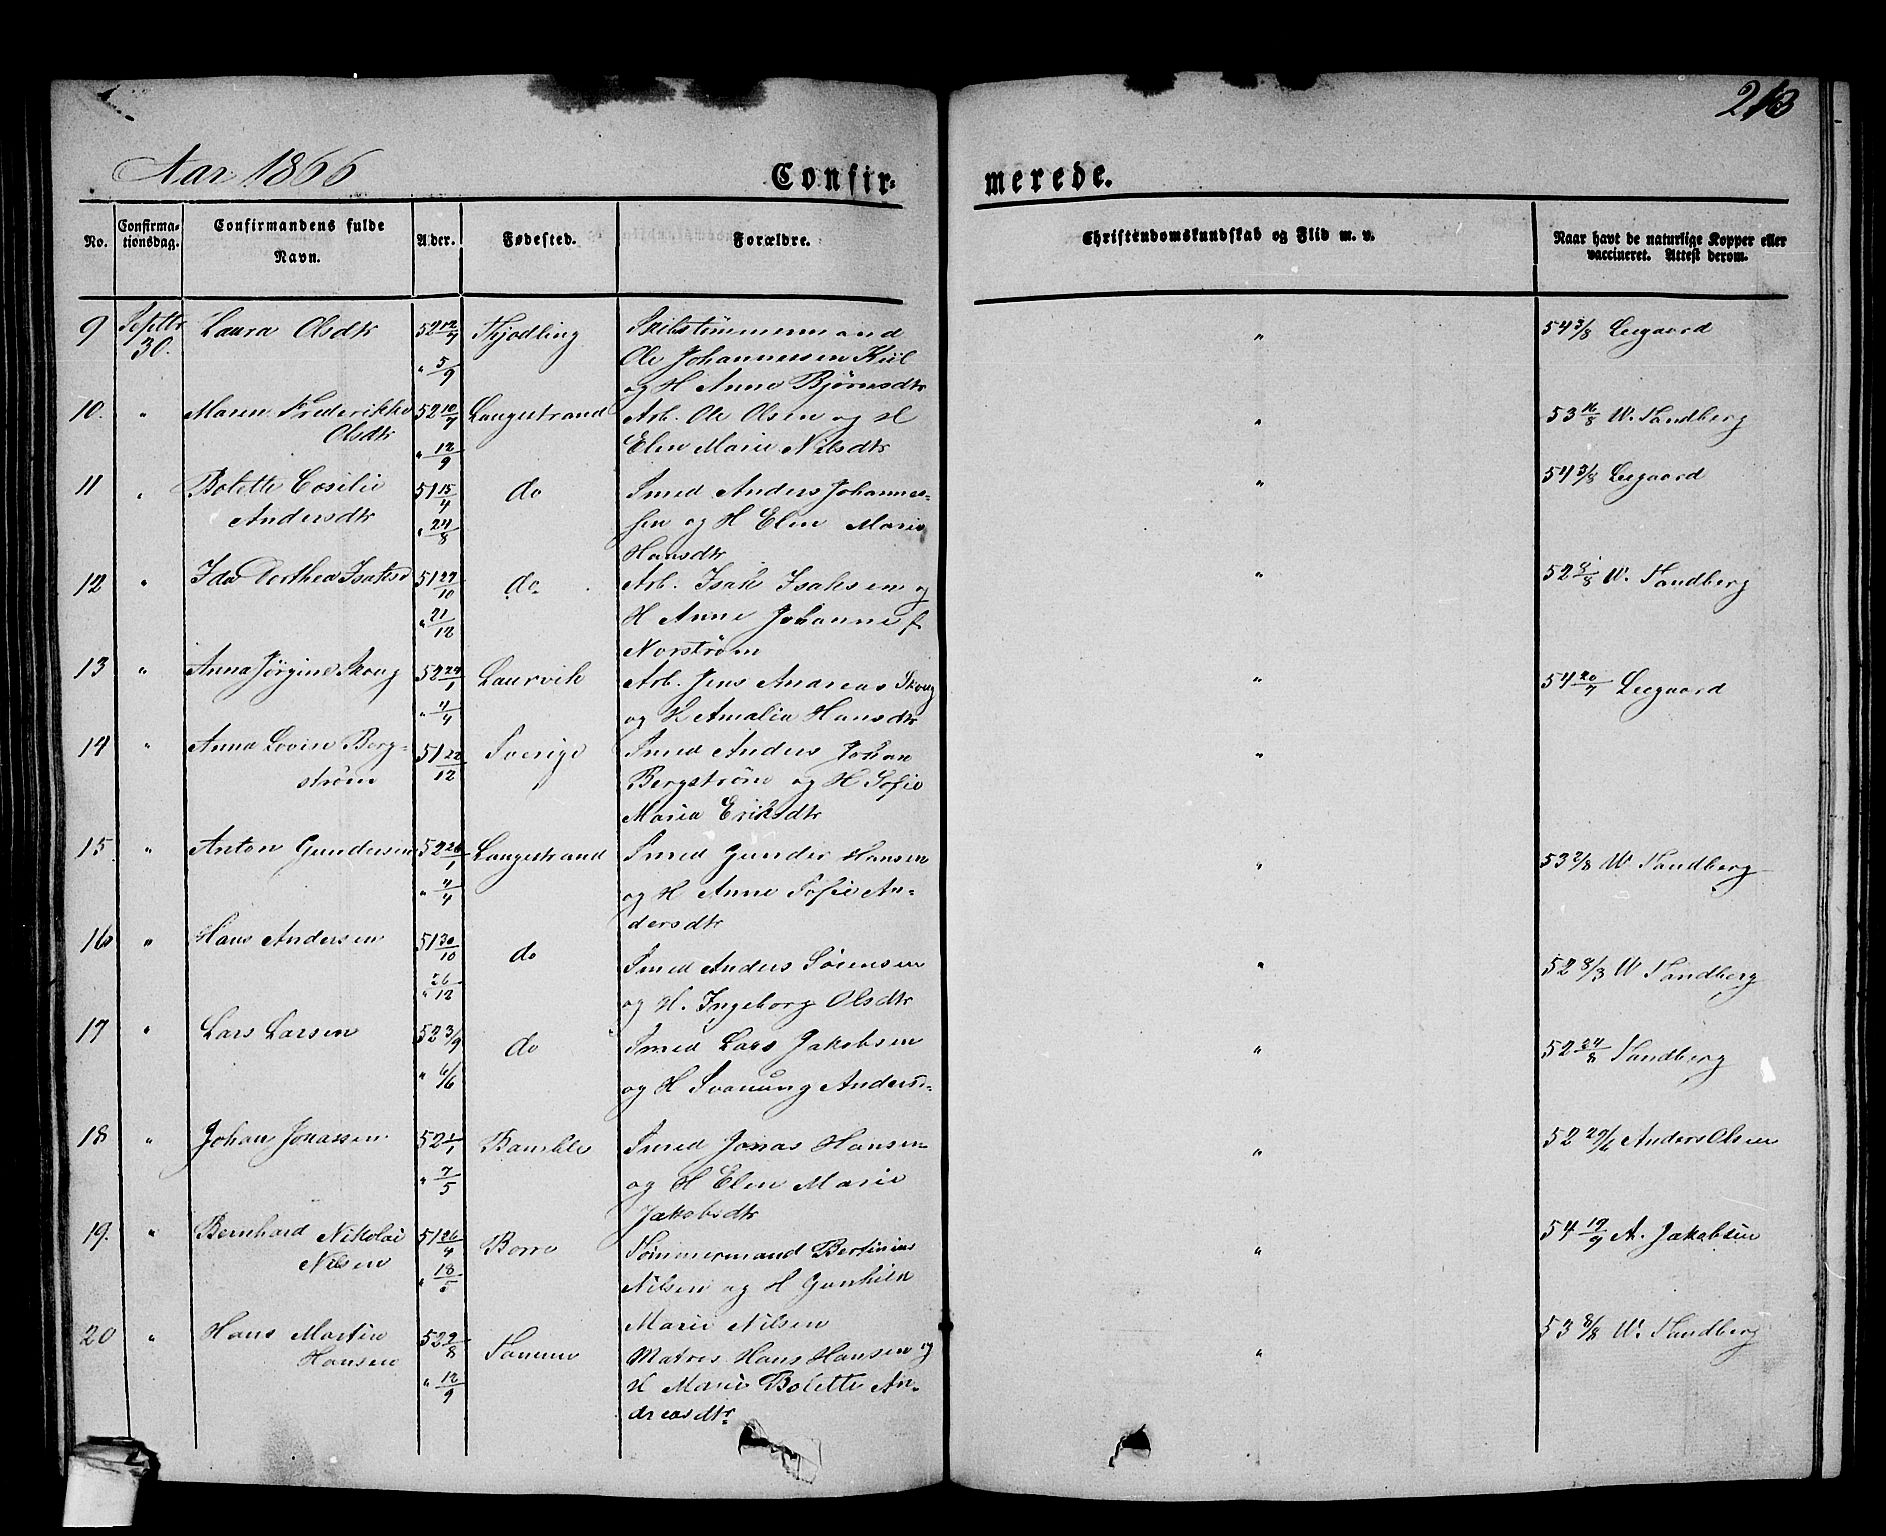 213
Aar 1866
Confir-
merede.
No.
Confirma-
tionsdag.
Confirmandens fulde
Navn.
Alder.
Fødested.
Forældre.
Christendomskundskab og Flid m. v.
Naar havt de naturlige Kopper eller
vaccineret. Attest derom.
9 Septbr 30. Laura Olsdtr 52 12/7 " 5/9 Thjodling
Ole Johannessen Kiil
og H Anne Bjørnsdtr
" 54 3/8 Leegaard
10. " Maren Frederikke
Olsdtr
52 10/7 " 12/9 Langestrand
Arb. Ole Olsen og H
Elen Marie Nilsdtr
" 53 16/8 W. Sandberg
11 " Bolette Cesilie
Andersdtr
51 15/4 " 24/8 do
Smed Anders Johannes-
sen og H Elen Marie
Hansdtr
" 54 3/8 Leegaard
12 " Ida Dorthea Isaksd
51 27/10 " 21/12 do
Arb. Isak Isaksen og
H Anne Johanne f.
Norstrøm
" 52 8/8 W. Sandberg
13 " Anna Jørgine Skoug
52 24/1 " 4/4 Laurvik
Arb. Jens Andreas Skoug
og H Amalia Hansdtr
" 54 20/7 Leegaard
14 " Anna Lovise Berg-
strøm
51 22/12 Sverige
Smed Anders Johan
Bergstrøm og H Sofie
Maria Eriksdtr
"
15 " Anton Gundersen
52 26/1 " 4/4 Langestrand
Smed Gunder Hansen
og H Anne Sofie An-
dersdtr
" 53 2/8 W Sandberg
16 " Hans Andersen
51 30/10 " 26/12 do
Smed Anders Sørensen
og H. Ingeborg Olsdtr
" 52 8/3 W Sandberg
17 " Lars Larsen
52 3/9 " 6/6 do
Smed Lars Jakobsen
og H
" 52 24/8 Sandberg
18 " Johan Jonassen
52 1/1 " 7/5 Bamble
Smed Jonas Hansen
og H Elen Marie
Jakobsdtr
" 52 29/6 Anders Olsen
19. " Bernhard Nikolai
Nilsen
51 26/4 " 18/5 Borre
Tømmermand Bertinius
Nilsen og H Gunhild
Marie Nilsen
" 54 19/9 A. Jakobsen
20 " Hans Martin
Hansen
52 2/8 " 12/9
Matros Hans Hansen og
H Marie Bolette An-
dreasdtr
" 53 8/8 W. Sandberg